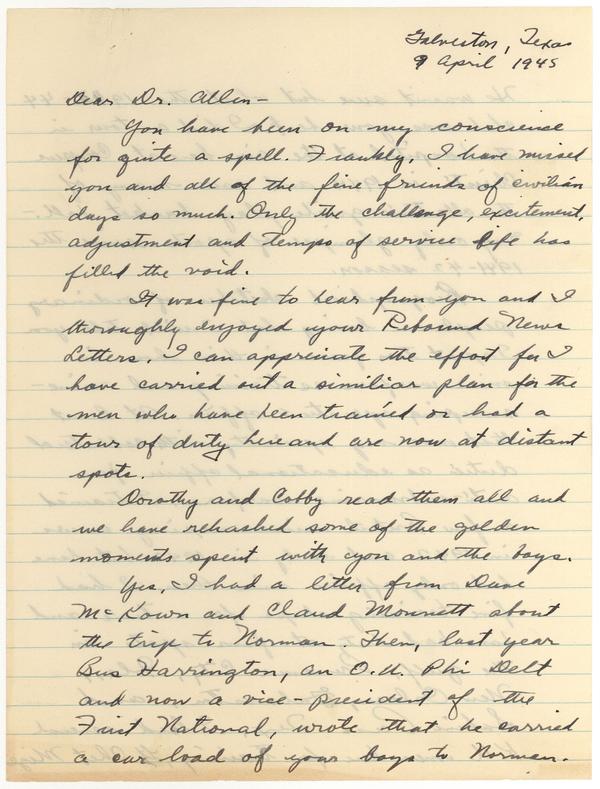 Galveston, Texas
9 April 1945
Dear Dr. Allen-
You have been on my conscience
for quite a spell. Frankly, I have missed
you and all of the fine friends of civilian
days so much. Only the challenge, excitement,
adjustment and tempo of service life has
filled the void.
It was fine to hear from you and I
thoroughly enjoyed your Rebound News
Letters. I can appreciate the effort for I
have carried out a similiar plan for the
men who have been trained or had a
tour of duty here and are now at distant
spots.
Dorothy and Cobby read them all and
we have rehashed some of the golden
moments spent with you and the boys.
Yes, I had a letter from Dave
McKown and Claud Monnett about
the trip to Norman. Then, last year
Bus Harrington, an O.U. Phi Delt
and now a vice-president of the
First National, wrote that he carried
a car load of your boys to Norman.